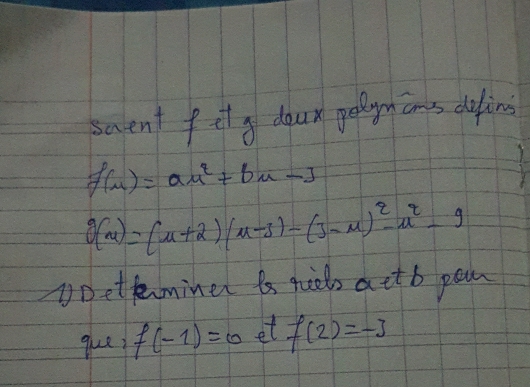 Soient f et g deux polynôms definis
f(x) = ax² + bx - 3
g(x) = (x+2)(x-3) - (3-x)² - x² - 9
1) Determiner ls réels a et b pour
que, f(-1)=0 et f(2)=-3